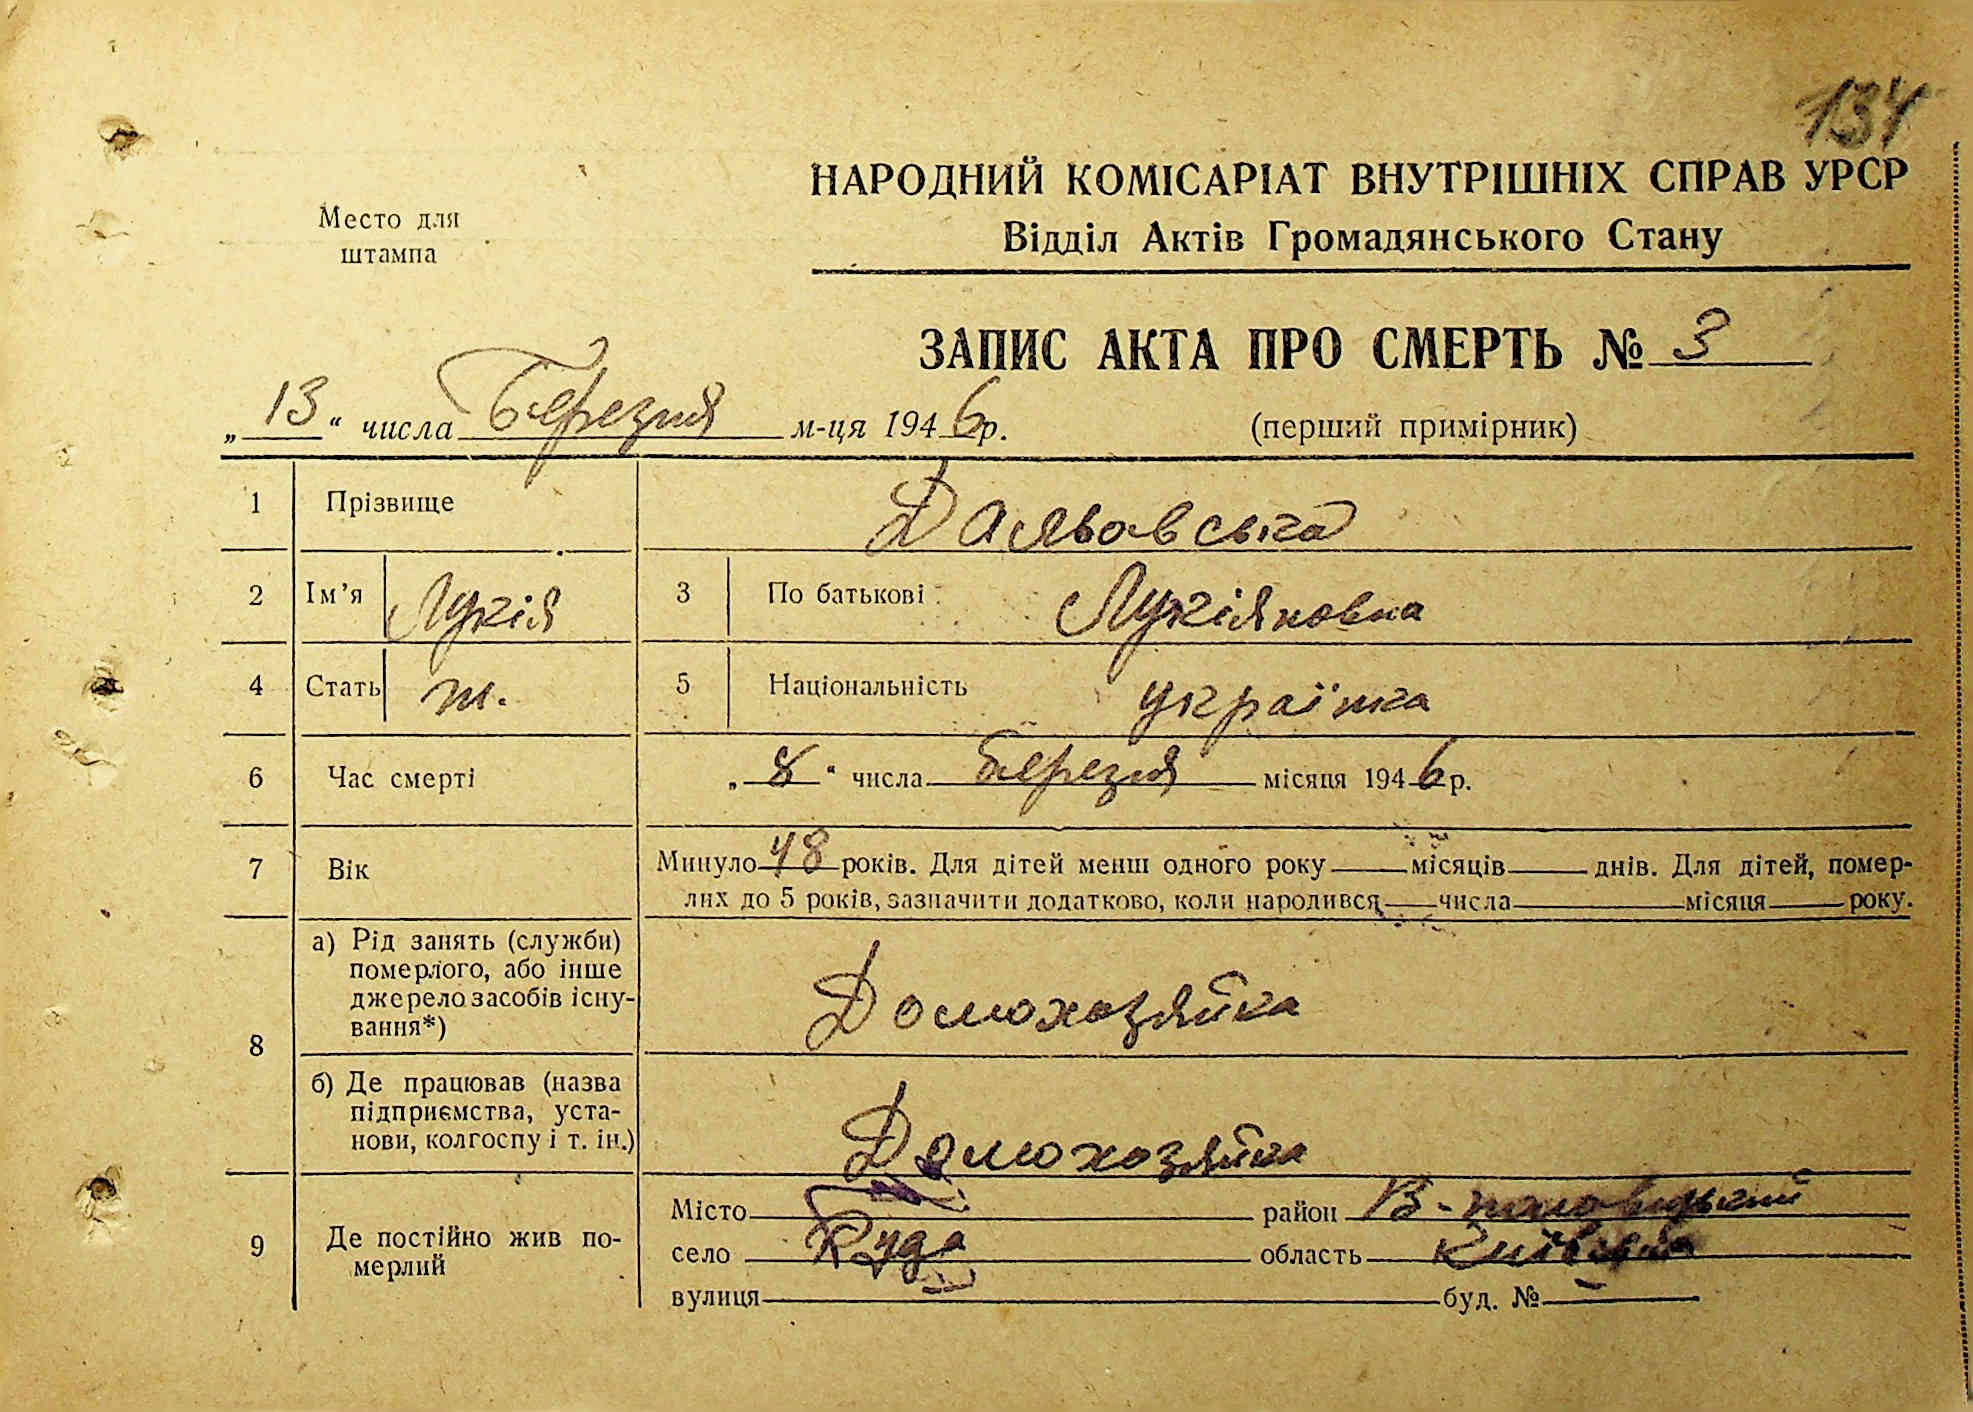 134
НАРОДНИЙ КОМІСАРІАТ ВНУТРІШНІХ СПРАВ УРСР
Відділ Актів Громадянського Стану
Место для
штампа
ЗАПИС АКТА ПРО СМЕРТЬ № 3
„13“ числа Березня м-ця 1946р.
(перший примірник)
1 Прізвище Дальовська
2 Ім'я Лукія 3 По батькові Лукіяновна
4 Стать ж. 5 Національність українка
6 Час смерті „8“ числа Березня місяця 1946р.
7 Вік Минуло 48 років. Для дітей менш одного року місяців днів. Для дітей, помер-
лих до 5 років, зазначити додатково, коли народився числа місяця року.
8 а) Рід занять (служби)
померлого, або інше
джерело засобів існу-
вання*) Домохозяйка
б) Де працював (назва
підприємства, уста-
нови, колгоспу і т. ін.) Домохозяйка
9 Де постійно жив по-
мерлий
Місто район В-
село Руда область Київська
вулиця буд. № —